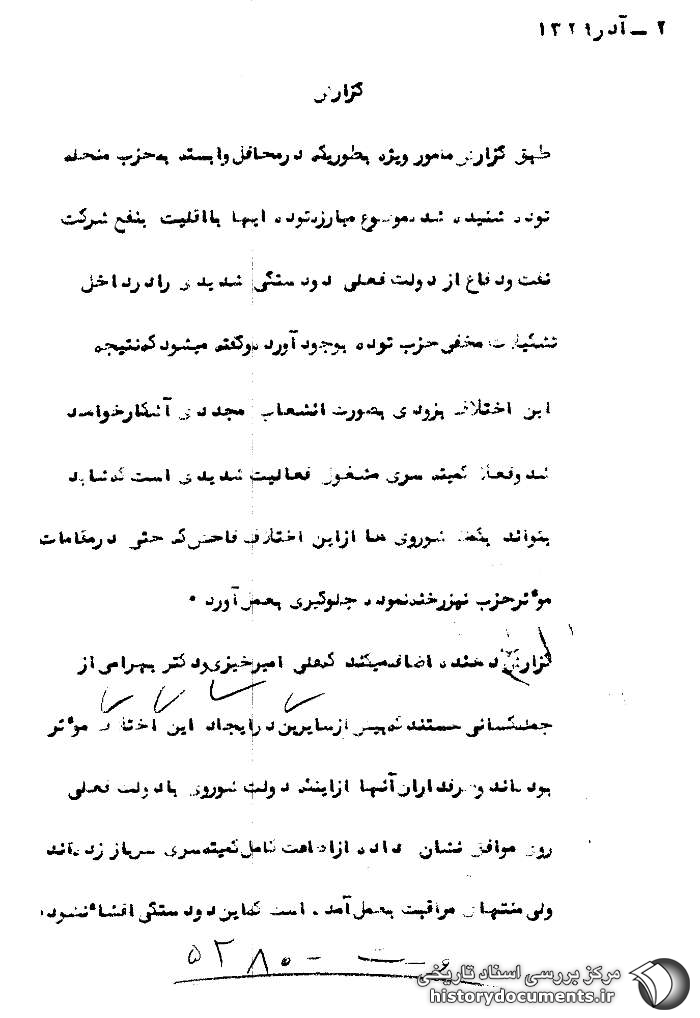 ۲ ــ آذر ۱۳۲۹
گزارش
طبق گزارش مامور ویژه بطوریکه درمحافل وابسته به حزب منحله
توده شنیده شده موضوع مبارزه توده ایها با اقلیت بنفع شرکت
نفت ودفاع از دولت فعلی دودستگی شدیدی را در داخل
تشکیلات مخفی حزب توده بوجود آورده وگفته میشود که نتیجه
این اختلاف بزودی بصورت انشعاب مجددی آشکارخواهد
شد وفعلا کمیته سری مشغول فعالیت شدیدی است که شاید
بتواند بکمک شوروی ها ازاین اختلاف فاحش که حتی درمقامات
موثرحزب نیزرخنه نموده جلوگیری بعمل آورد .
گزارش دهنده اضافه میکند که علی امیرخیزی ودکتر بهرامی از
جمله کسانی هستند که بیش ازسایرین درایجاد این اختلاف موثر
بوده اند وطرفداران آنها ازاینکه دولت شوروی بادولت فعلی
روی موافق نشان داده ازاطاعت کامل کمیته سری سرباز زده اند
ولی منتهای مراقبت بعمل آمده است که این دودستگی افشاء نشود .
مرکز بررسی اسناد تاریخی
historydocuments.ir